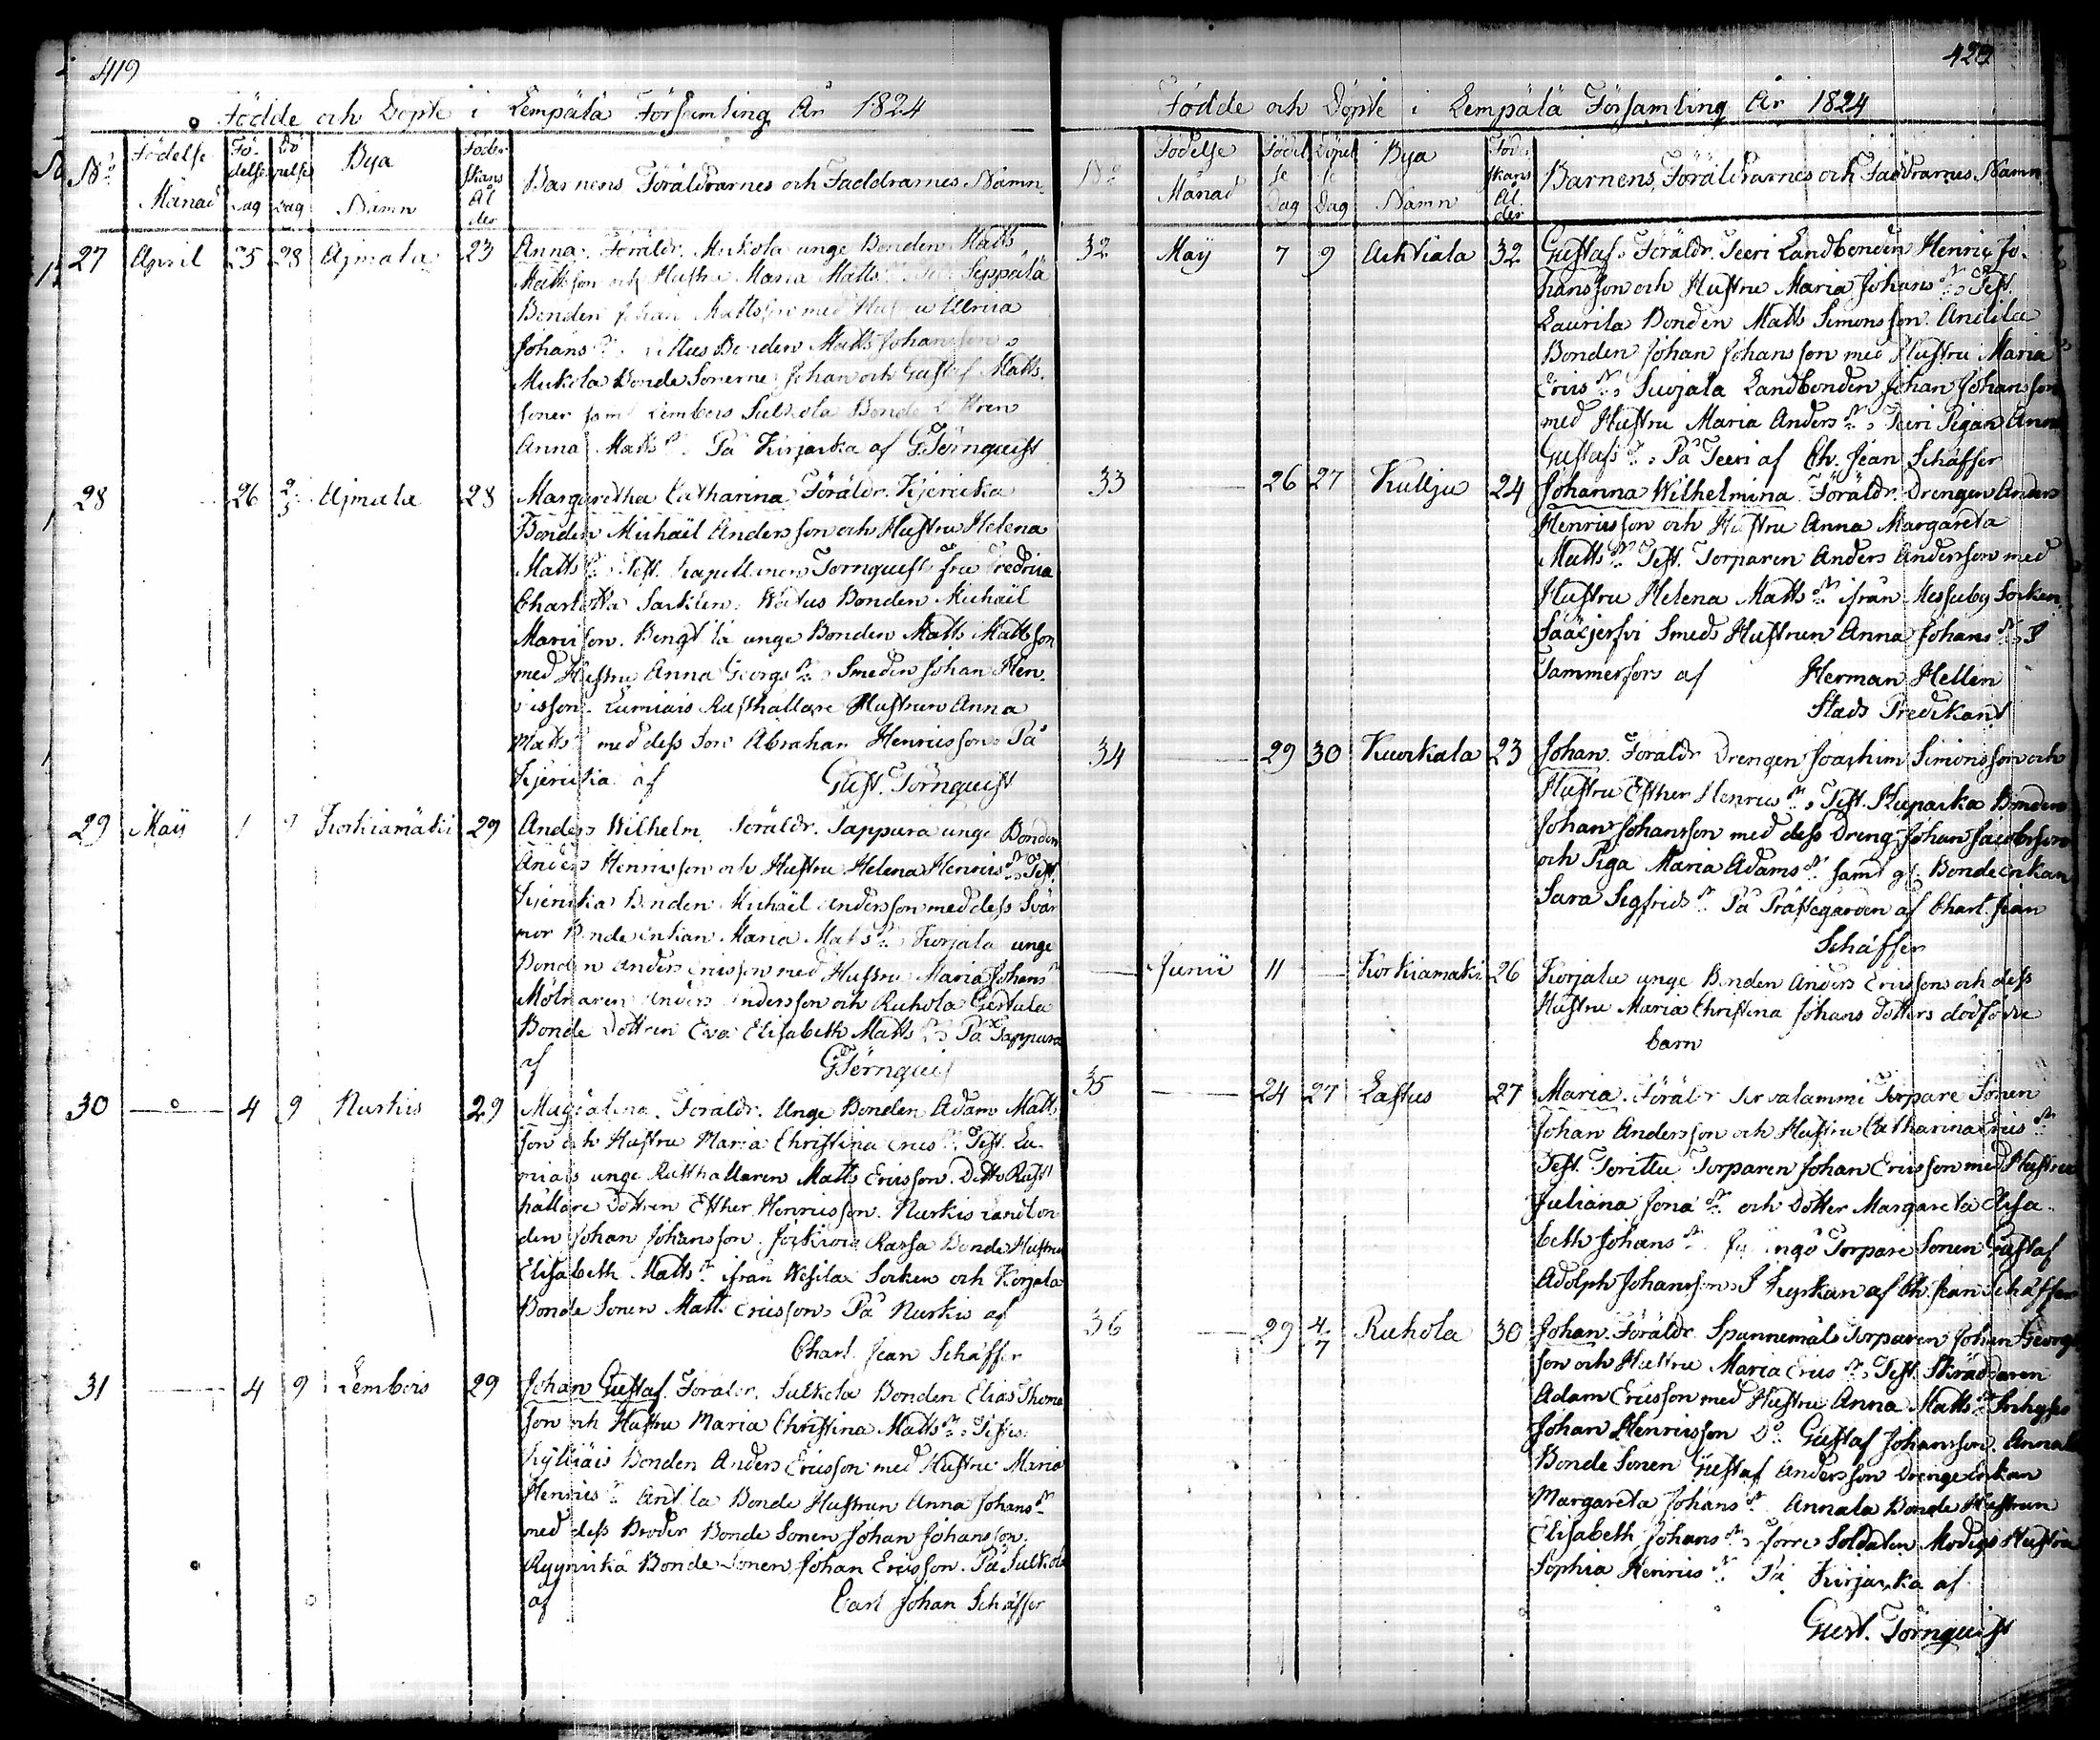 419
Födde och Döpte i Lempälä Församling År 1824
No Födelse Månad Födelse Dag Döpelse Dag Bya Namn Föderskans Ålder Barnens Föräldrarnes och Faddrarnes Namn
27 April 25 28 Ajmala 23 Anna. Föräldr. Mukola unge Bonden Matts
Mattsson och Hustru Maria Matts Seppälä
Bonden Johan Mattsson med Hustru Ulrica
Johans Bonden Matts Johansson
Mukola Bonde Sönerne Johan och Gustaf Matts
söner samt Lembois Sulkola Bonde Dottren
Anna Matts dr På Kirjaska af G Törnquist
28 26 2/5 Ajmala 28 Margaretha Catharina Föräldr. Kjericka
Bonden Michaël Andersson och Hustru Helena
Matts dr Test. Törnquists fru Fredrica
Charlotta Bonden Michaël
Bengtlä unge Bonden Matts Mattsson
med Hustru Anna Georgs dr Smeden Johan Hen
ricsson. Lumiais Rusthållare Hustrun Anna
Matts dr med dess Son Abraham Henricsson På
Kjericka af Gust. Törnquist
29 Maij 1 Korkiamäki 29 Anders Wilhelm Föräldr. Sappura unge Bonden
Anders Henricsson och Hustru Helena Henrics dr Test.
Kjericka Bonden Michaël Andersson med dess Svär
mor Bonde Enkan Maria Matts dr Korjala unge
Bonden Anders Ericsson med Hustru Maria Johans dr
Mölnaren Anders Andersson och Ruhola
Bonde Dottren Eva Elisabeth Matts dr På Sappura
af G Törnquist
30 4 9 Nurkis 29 Magdalena. Föräldr. Unge Bonden Adam Matts
son och Hustru Maria Christina Erics dr Test. Lu
miais unge Rusthållaren Matts Ericsson. Ditto Rust
hållare Dottren Esther Henricsson. Nurkis Landbon
den Johan Johansson. Bonde Hustrun
Elisabeth Matts dr ifrån Wesilax Socken och Korjala
Bonde Sonen Matts Ericsson. På Nurkis af
Charl. Jean Schäffer
31 4 9 Lembois 29 Johan Gustaf. Föräldr. Sulkola Bonden Elias Thoma
son och Hustru Maria Christina Matts dr Testes
Bonden Anders Ericsson med Hustru Maria
Henrics dr Antila Bonde Hustrun Anna Johans dr
med dess Broder Bonde Sonen Johan Johansson.
Bonde Sonen Johan Ericsson. På Sulkola
af Carl Johan Schäffer
420
Födde och Döpte i Lempälä Församling År 1824
No Födelse Månad Födelse Dag Döpelse Dag Bya Namn Föderskans Ålder Barnens Föräldrarnes och Faddrarnes Namn
32 Maij 7 9 Achtiala 32 Gustaf. Föräldr. Teeri Landbonden Henric Jo
hansson och Hustru Maria Johans dr Test.
Laurila Bonden Matts Simonsson. Anttila
Bonden Johan Johansson med Hustru Maria
Erics dr Suojala Landbonden Johan Johansson
med Hustru Maria Anders dr Teeri Pigan Anna
Gustafs dr På Teeri af Ch. Jean Schäffer
33 26 27 Kulju 24 Johanna Wilhelmina Föräldr. Drengen Anders
Henricsson och Hustru Anna Margareta
Matts dr Test. Torparen Anders Andersson med
Hustru Helena Matts dr ifrån Messuby Socken.
Sääxjerfvi Smeds Hustrun Anna Johans dr I
Tammerfors af Herman Hellen
Stads Predikant
34 29 30 Kuokkala 23 Johan. Föräldr Drengen Joachim Simonsson och
Hustru Esther Henrics dr Test. Kuparka Bonden
Johan Johansson med dess Dreng Johan Jacobsson
och Piga Maria Adams dr samt gl. Bonde enkan
Sara Sigfrids dr På Prästegården af Charl. Jean
Schäffer
Junii 11 Korkiamäki 26 Korjala unge Bonden Anders Ericssons och dess
Hustru Maria Christina Johans dotters dödfödde
barn
35 24 27 Lastus 27 Maria. Föräldr Torpare Sonen
Johan Andersson och Hustru Catharina Erics dr
Test. Torittu Torparen Johan Ericsson med Hustru
Juliana Jona dr och Dotter Margareta Elisa
beth Johans dr Torpare Sonen Gustaf
Adolph Johansson. I Kyrkan af Ch. Jean Schäffer
36 29 4/7 Ruhola 30 Johan. Föräldr. Spannemåls Torparen Johan Georg
son och Hustru Maria Erics dr Test. Skräddaren
Adam Ericsson med Hustru Anna Matts dr Inhyses
Johan Henricsson Do Gustaf Johansson. Annala
Bonde Sonen Gustaf Andersson Drenge Enkan
Margareta Johans dr Annala Bonde Hustrun
Elisabeth Johans dr förre Soldaten Modigs Hustru
Sophia Henrics dr På Kirjaska af
Gust. Törnquist